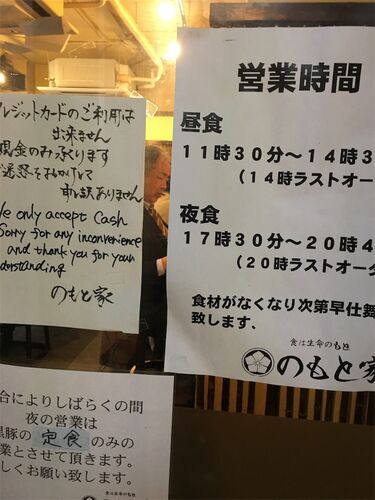 レジットカードのご利用は
出来ません
現金のみ承ります
ご迷惑をおかけして
申し訳ありません
We only accept Cash
Sorry for any inconvenience
and thank you for your
understanding
のもと家
営業時間
昼食
11時30分〜14時3
(14時ラストオー
夜食
17時30分〜20時4
(20時ラストオー
食材がなくなり次第早仕舞
致します、
食は生命のもと
のもと家
合によりしばらくの間
夜の営業は
黒豚の 定食 のみの
業とさせて頂きます。
しくお願い致します。
食は生命のもと
のもと家